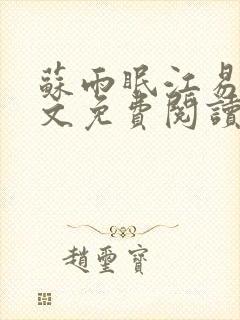 蘇雨眠江易
文免費閱讀
趙璽寶